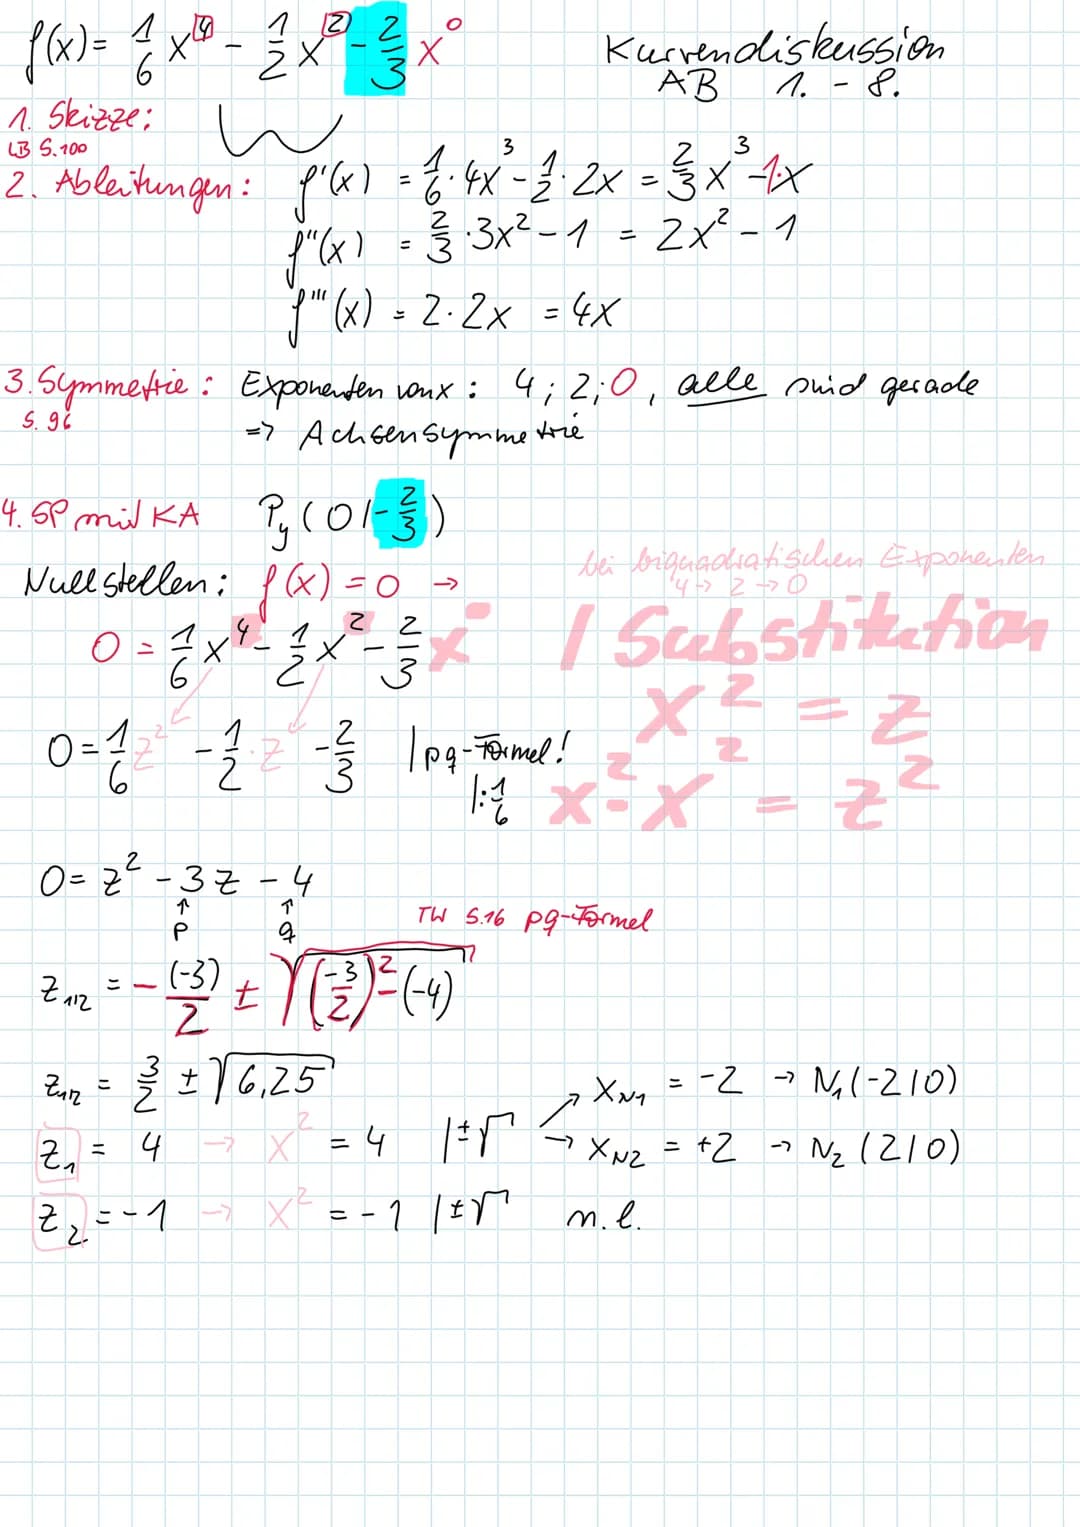 f(x) = 1/6 x^4 - 1/2 x^2 - 2/3 x^0
Kurvendiskussion
AB 1. - 8.
1. Skizze:
LB S.100
2. Ableitungen: f'(x) = 1/6 · 4x^3 - 1/2 · 2x = 2/3 x^3 - 1·x
f''(x) = 2/3 · 3x^2 - 1 = 2x^2 - 1
f'''(x) = 2·2x = 4x
3. Symmetrie: Exponenten von x: 4; 2; 0, alle sind gerade
S. 96
=> Achsensymmetrie
4. SP mit KA P_y (0|-2/3)
bei biquadratischen Exponenten
4 → 2 → 0
Nullstellen: f(x) = 0 →
0 = 1/6 x^4 - 1/2 x^2 - 2/3 x^0 | Substitution
x^2 = z
0 = 1/6 z^2 - 1/2 · z - 2/3 | pq-Formel!
|: 1/6
x^2 · x^2 = z^2
0 = z^2 - 3z - 4
↑ ↑
p q
TW S.16 pq-Formel
z_1/2 = - (-3)/2 ± √((-3/2)^2 - (-4))
z_1/2 = 3/2 ± √6,25
z_1 = 4 → x^2 = 4 |±√
→ x_N1 = -2 → N_1 (-2|0)
→ x_N2 = +2 → N_2 (2|0)
z_2 = -1 → x^2 = -1 |±√ n.l.